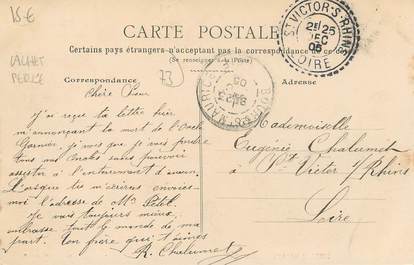 15€
CACHET
PERLÉ
CARTE POSTALE
Certains pays étrangers n'acceptant pas la correspondance de ce côté
(Se renseigner à la Poste)
Correspondance
Adresse
73
ST VICTOR-S-RHINS
25
DEC
05
LOIRE
BOURG-ST-MAURICE
Chère Sœur
J'ai reçu ta lettre hier
m'annonçant la mort de l'Oncle
Garnier, je vois que je vais perdre
tous nos Oncles sans pouvoir
assister à l'enterrement d'aucun.
Lorsque tu m'écriras envoies-
moi l'adresse de Mr Petit.
Je vais toujours mieux,
embrasse tout le monde de ma
part. Ton frère qui t'aime
R. Chalumet
Mademoiselle
Eugénie Chalumet
à St Victor s/ Rhins
Loire